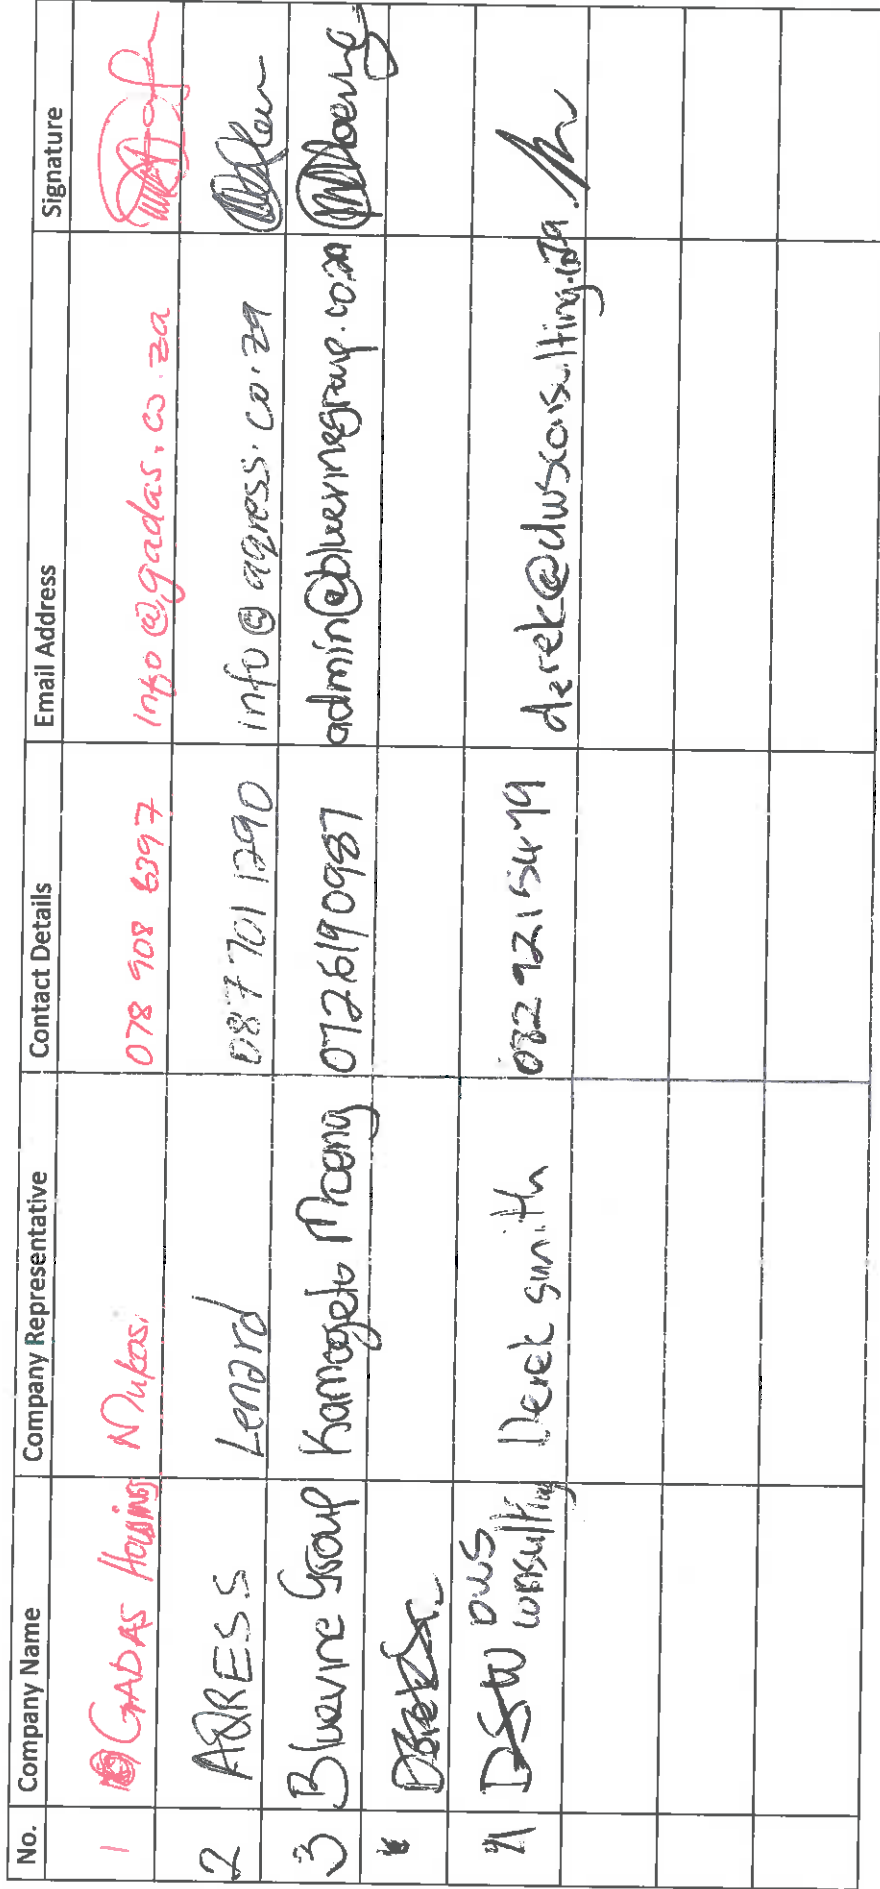 No. Company Name Company Representative Contact Details Email Address Signature
1 GADAS Housing Mukosi 078 908 6397 info@gadas.co.za
2 AQRESS Lenard 087 701 1290 info@aqress.co.za
3 Bluevine Group Kamogelo Moeng 0726190987 admin@bluevinegroup.co.za
DWS
consulting Derek Smith 082 921 5479 derek@dwsconsulting.co.za